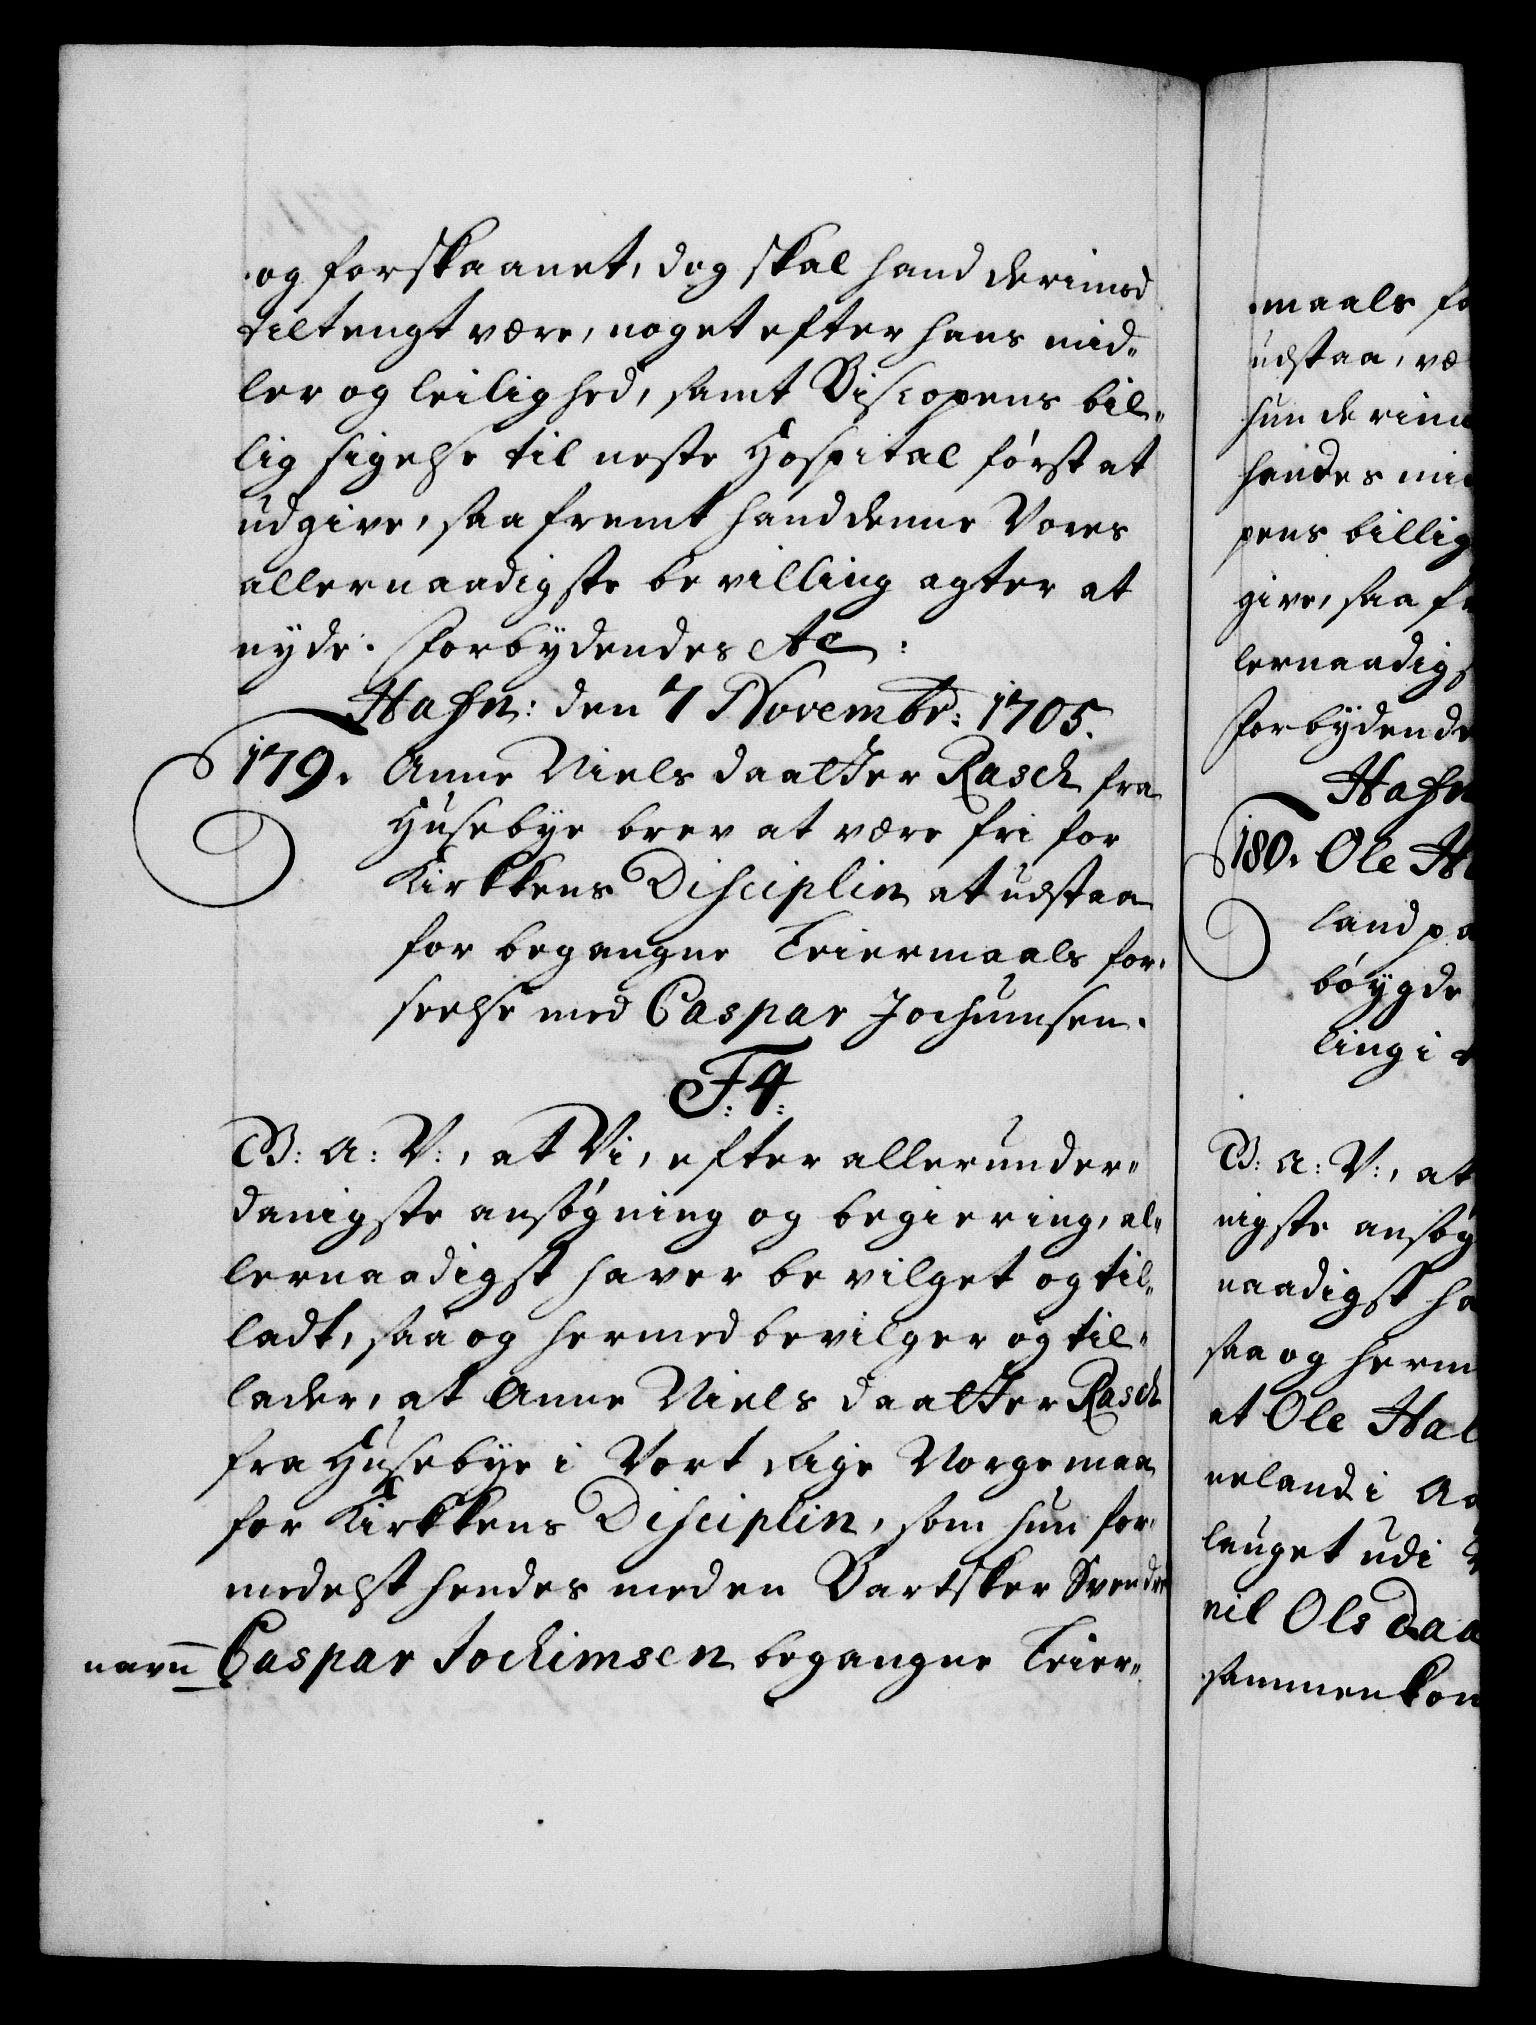 og forskaanet, dog skal hand derimod
tiltengt være, noget efter hans mid-
ler og leilighed, samt Biscopens bil-
lig sigelse til neste Hospital først at
udgive, saafremt hand denne Vores
allernaadigste bevilling agter at
nyde. Forbydendes etc:
Hafn: den 7 Novembr: 1705.
179. Anne Niels daatter Rasch fra
Husebye brev at være fri for
Kirkkens Disciplin at udstaa
for begangne Leiermaals for-
seelse med Caspar Jochumsen.
F: 4:
G: A: V:, at Vi, efter allerunder-
danigste ansøgning og begiering, al-
lernaadigst haver bevilget og til-
ladt, saa og hermed bevilger og til-
lader, at Anne Niels daatter Rasch
fra Husebye i Vort Rige Norge maa
for Kirkkens Disciplin, som hun for-
medelst hendes med en Bartsker Svend
navn Caspar Jochimsen begangne Leier-
maals fo
udstaa, væ
hun derim
hendes mi
pens billig
give, saa fr
lernaadigs
Forbydende
Hafn
180. Ole Ha
land pa
bøygde
ling i
G: A: V:, at
nigste ansøg
naadigst ha
saa og herm
at Ole Hal
neland i Aa
lauget udi
nil Ols daa
sammenkom